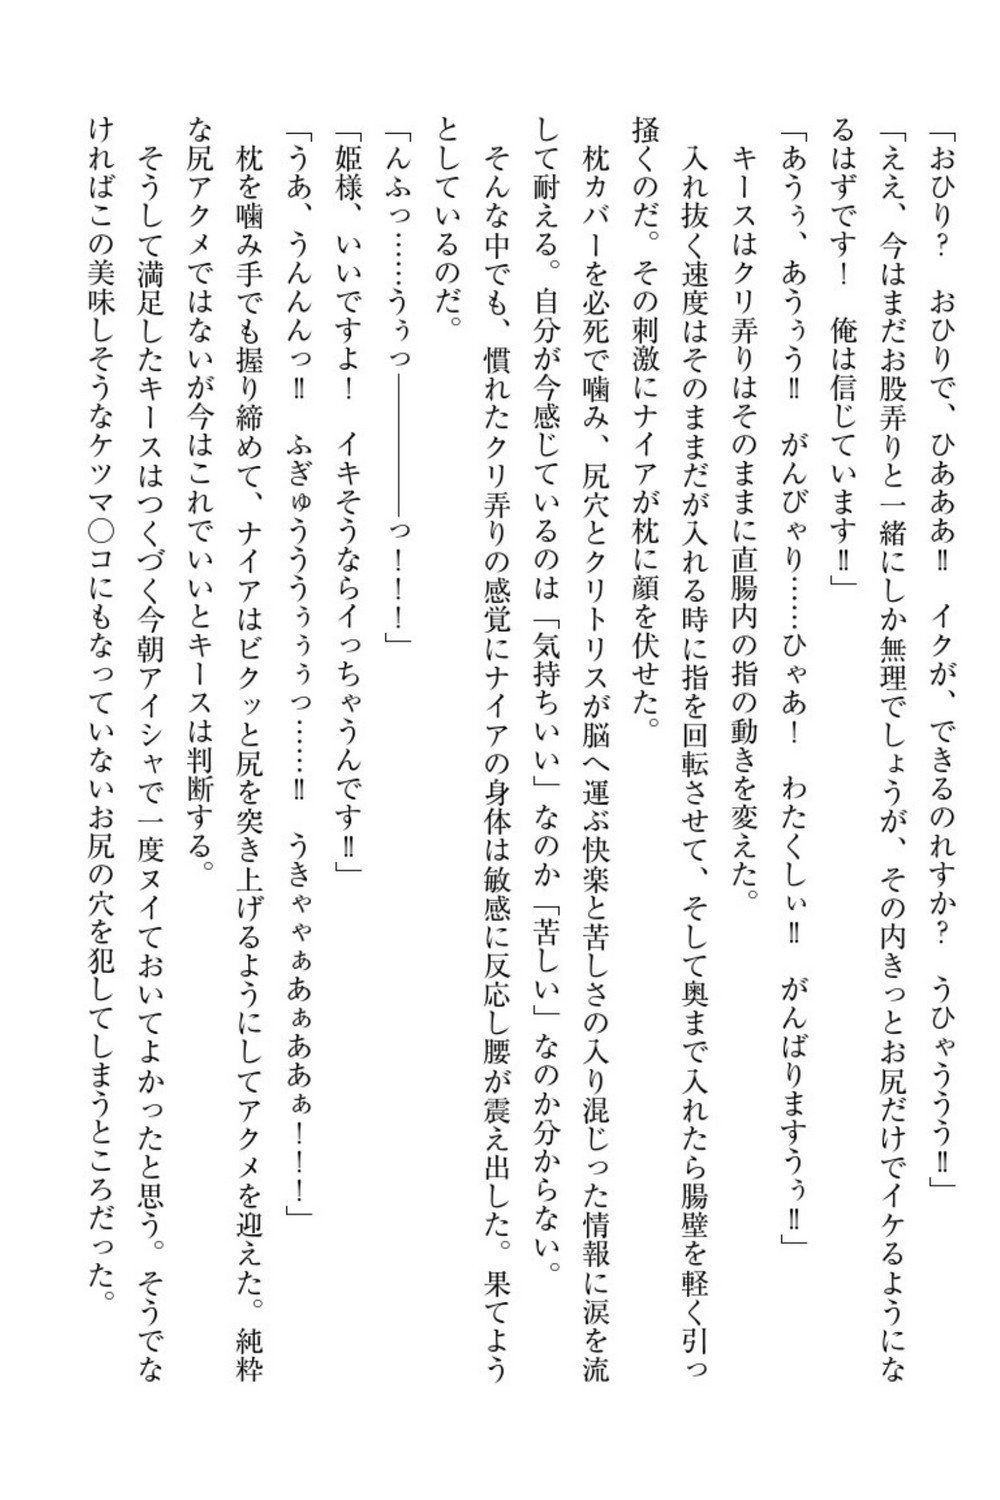 「おひり？　おひりで、ひあああ‼　イクが、できるのれすか？　うひゃううう‼」
「ええ、今はまだお股弄りと一緒にしか無理でしょうが、その内きっとお尻だけでイケるようにな
るはずです！　俺は信じています‼」
「あうぅ、あうぅう‼　がんびゃり……ひゃあ！　わたくしぃ‼　がんばりますうぅ‼」
　キースはクリ弄りはそのままに直腸内の指の動きを変えた。
　入れ抜く速度はそのままだが入れる時に指を回転させて、そして奥まで入れたら腸壁を軽く引っ
掻くのだ。その刺激にナイアが枕に顔を伏せた。
　枕カバーを必死で噛み、尻穴とクリトリスが脳へ運ぶ快楽と苦しさの入り混じった情報に涙を流
して耐える。自分が今感じているのは「気持ちいい」なのか「苦しい」なのか分からない。
　そんな中でも、慣れたクリ弄りの感覚にナイアの身体は敏感に反応し腰が震え出した。果てよう
としているのだ。
「んふっ……うぅっ――――っ！！！」
「姫様、いいですよ！　イキそうならイっちゃうんです‼」
「うあ、うんんんっ‼　ふぎゅうううぅぅぅっ……‼　うきゃゃぁあぁああぁ！！！」
　枕を噛み手でも握り締めて、ナイアはビクッと尻を突き上げるようにしてアクメを迎えた。純粋
な尻アクメではないが今はこれでいいとキースは判断する。
　そうして満足したキースはつくづく今朝アイシャで一度ヌイておいてよかったと思う。そうでな
ければこの美味しそうなケツマ〇コにもなっていないお尻の穴を犯してしまうところだった。